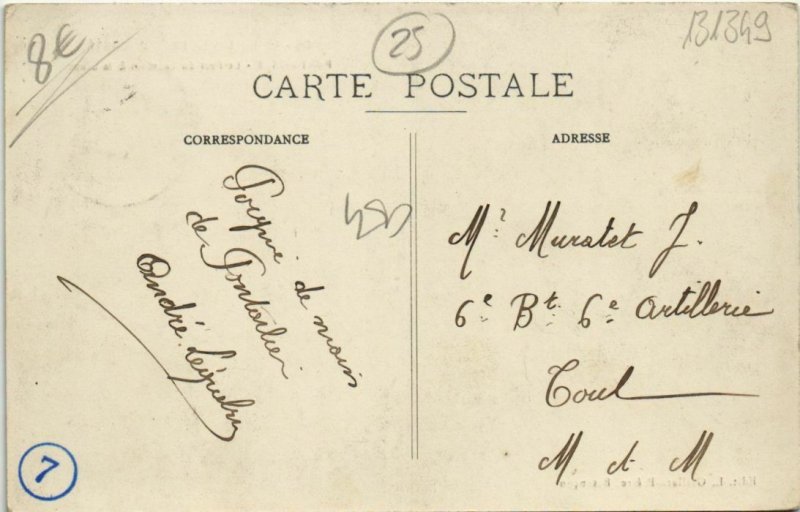 8€
25
131349
CARTE POSTALE
CORRESPONDANCE
ADRESSE
de main
de Pontarlier
André
7
Mr Muratet J.
6e Bt. 6e Artillerie
Toul
M. et M